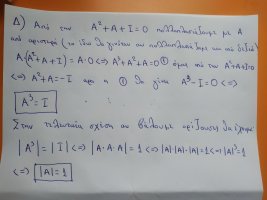 Δ) Από την A² + A + I = 0 πολλαπλασιάζουμε με A
από αριστερά (το ίδιο θα γινόταν αν πολλαπλασιάζαμε και από δεξιά)
A·(A² + A + I) = A·0 <=> A³ + A² + A = 0 ① όμως από την A² + A + I = 0
<=> A² + A = -I άρα η ① θα γίνει A³ - I = 0 <=>
A³ = I
Στην τελευταία σχέση αν βάλουμε ορίζουσα θα έχουμε:
|A³| = |I| <=> |A·A·A| = 1 <=> |A|·|A|·|A| = 1 <=> |A|³ = 1
<=> |A| = 1